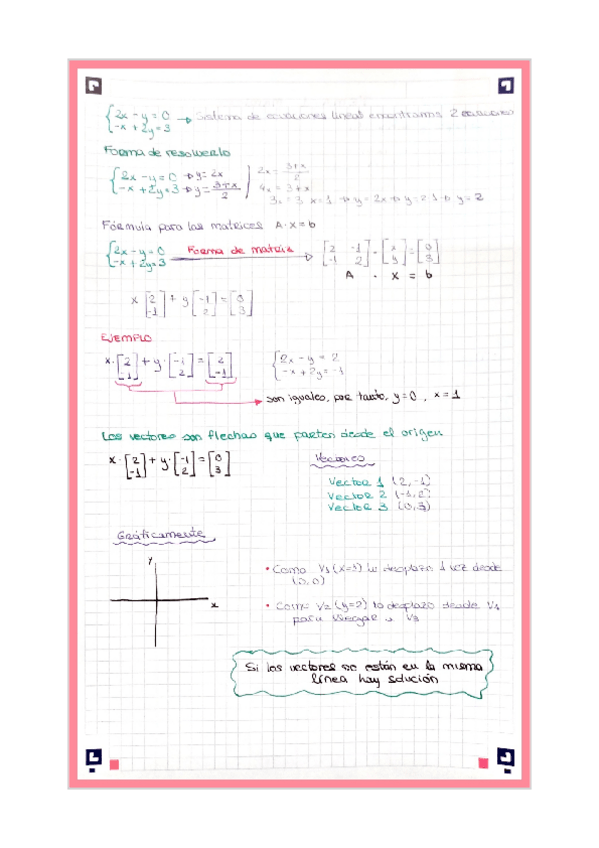 {2x - y = 0 → Sistema de ecuaciones lineal encontramos 2 ecuaciones
-x + 2y = 3
Forma de resolverlo
{2x - y = 0 → y = 2x
-x + 2y = 3 → y = 3+x/2
2x = 3+x/2
4x = 3+x
3x = 3 x = 1 → y = 2x → y = 2·1 → y = 2
Fórmula para las matrices A·x = b
{2x - y = 0
-x + 2y = 3
Forma de matriz
[2 -1; -1 2] · [x; y] = [0; 3]
A · x = b
x [2; -1] + y [-1; 2] = [0; 3]
EJEMPLO
x·[2; -1] + y·[-1; 2] = [2; -1]
{2x - y = 2
-x + 2y = -1
son iguales, por tanto, y=0, x=1
Los vectores son flechas que parten desde el origen
x·[2; -1] + y·[-1; 2] = [0; 3]
Vectores
Vector 1 (2, -1)
Vector 2 (-1, 2)
Vector 3 (0, 3)
Gráficamente
y
x
• Como V1 (x=1) lo desplazo 1 vez desde
(0,0)
• Como V2 (y=2) lo desplazo desde V1
para V3
Si los vectores no están en la misma
línea hay solución